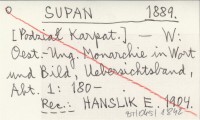 SUPAN 1889.
[Podział Karpat.] — W:
Oest.-Ung. Monarchie in Wort
und Bild, Uebersichtsband,
Abt. 1: 180-
Rec.: HANSLIK E. 1904.